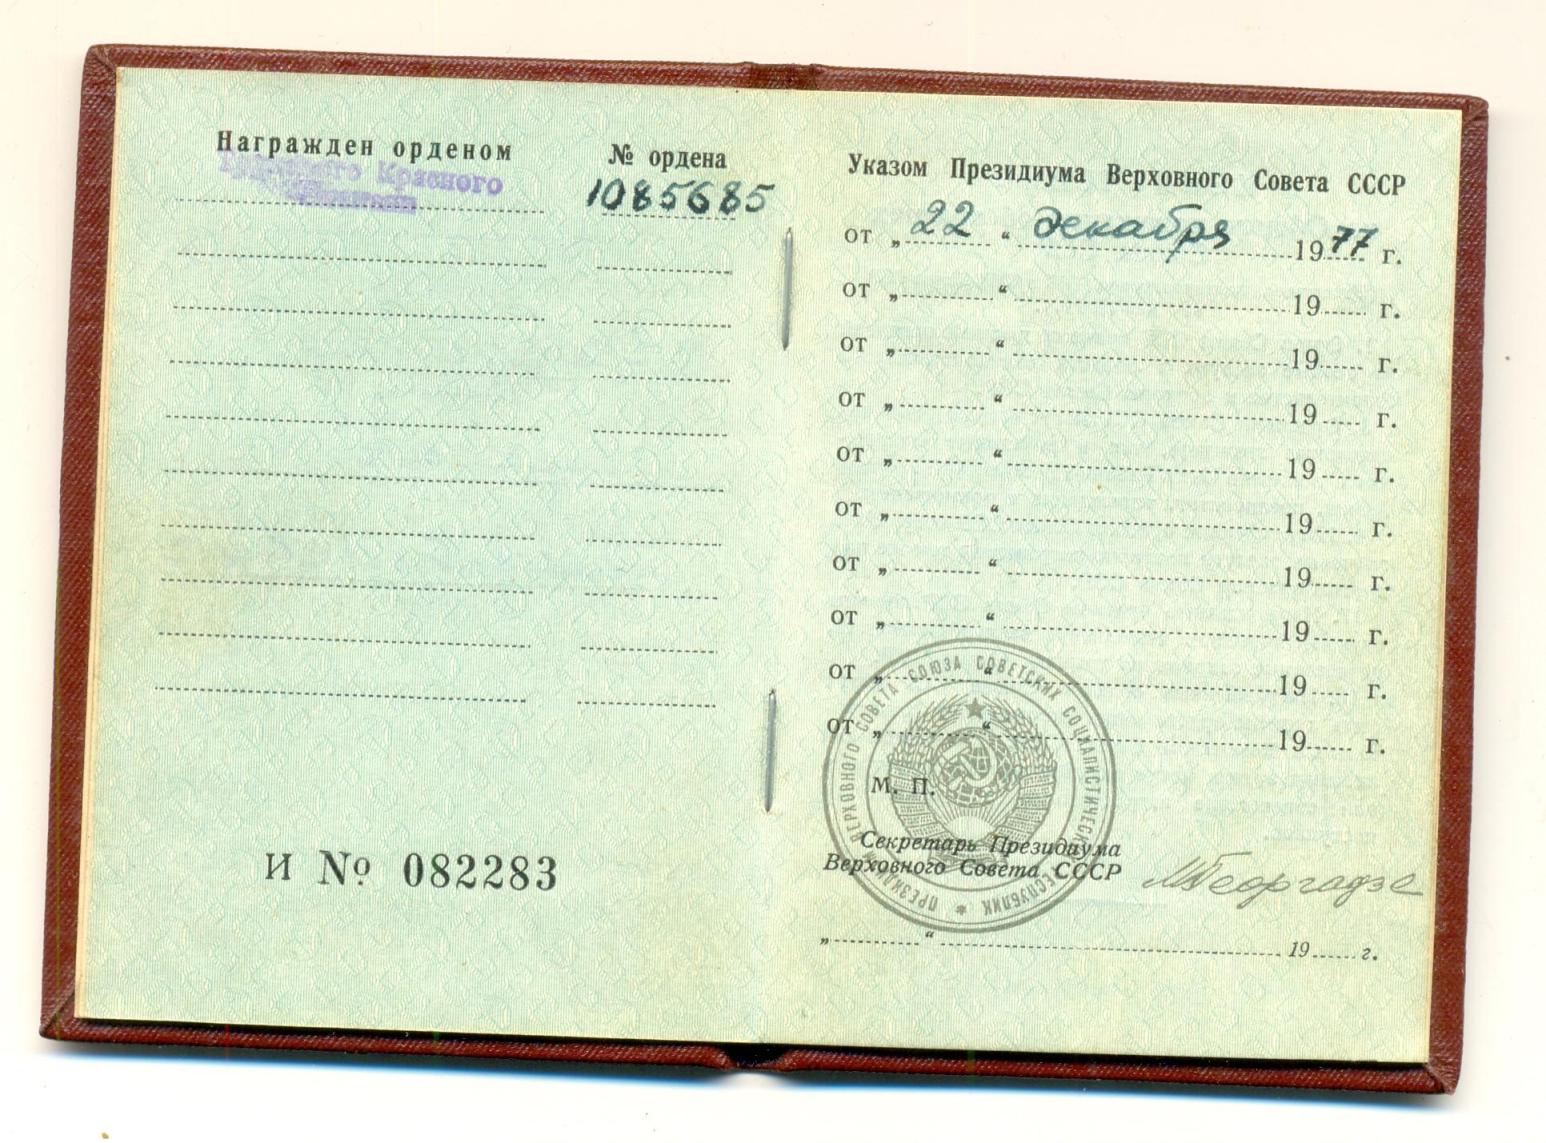 Награжден орденом
Трудового Красного
Знамени
№ ордена
1085685
И № 082283
Указом Президиума Верховного Совета СССР
от „22“ декабря 1977 г.
от „ “ 19 г.
от „ “ 19 г.
от „ “ 19 г.
от „ “ 19 г.
от „ “ 19 г.
от „ “ 19 г.
от „ “ 19 г.
от „ “ 19 г.
от „ “ 19 г.
ПРЕЗИДИУМ ВЕРХОВНОГО СОВЕТА СОЮЗА СОВЕТСКИХ СОЦИАЛИСТИЧЕСКИХ РЕСПУБЛИК
М. П.
Секретарь Президиума
Верховного Совета СССР
МГеоргадзе
„ “ 19 г.